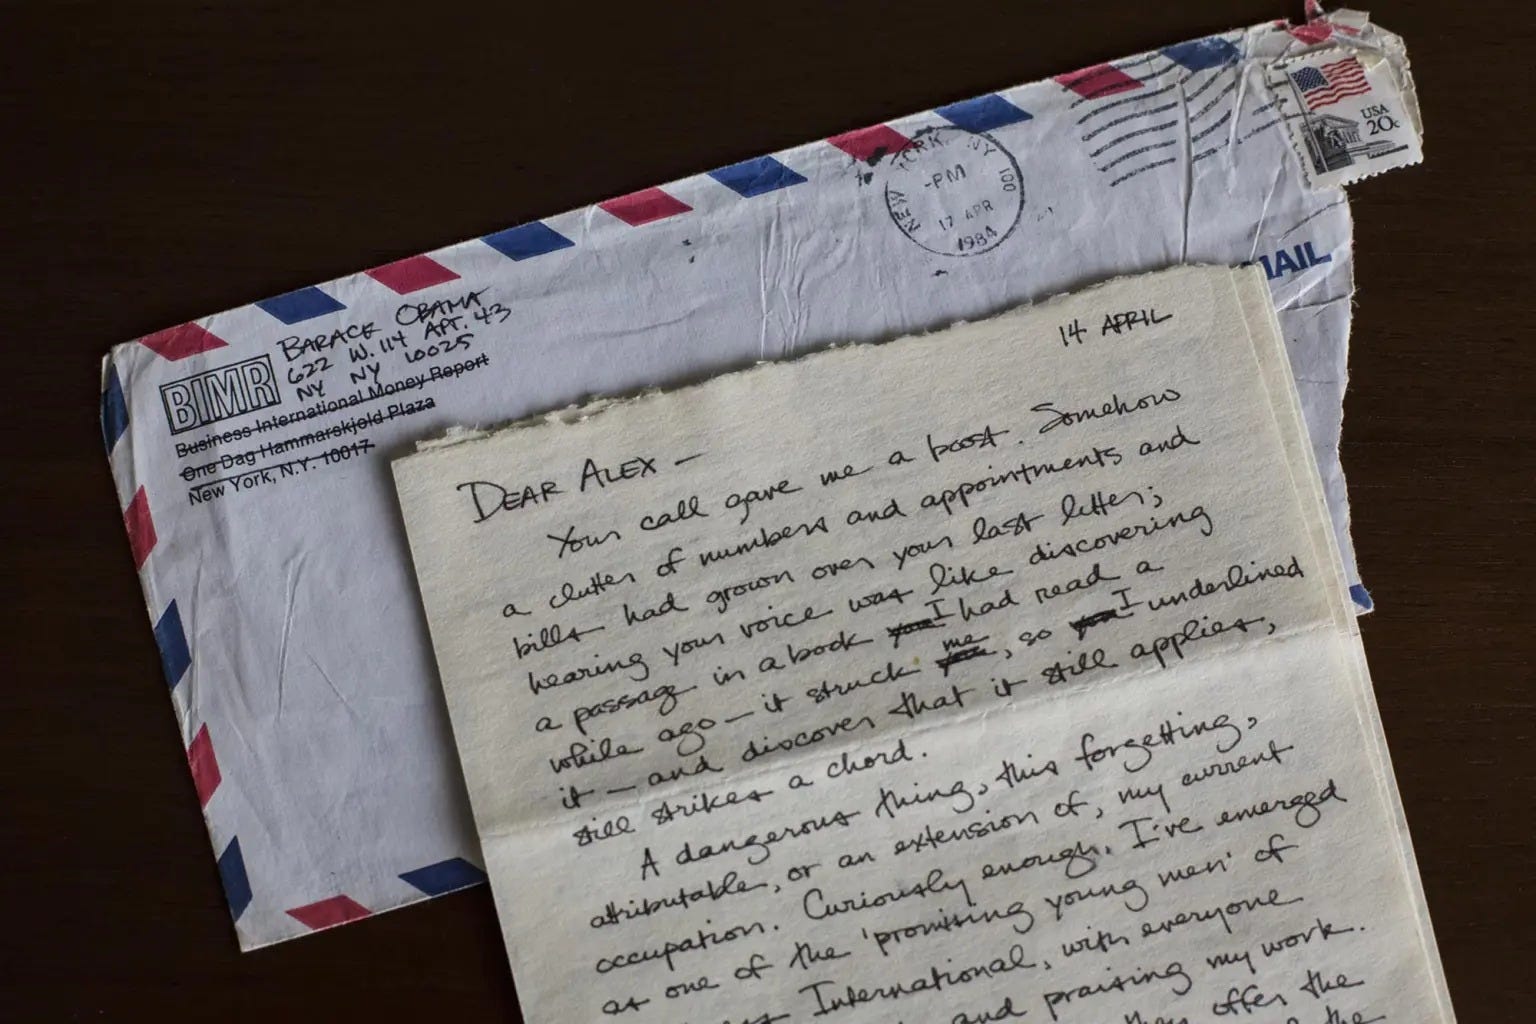 USA
20c
NEW YORK, NY 100
PM
17 APR
1984
MAIL
BARACK OBAMA
622 W. 114 APT. 43
NY NY 10025
BIMR
Business International Money Report
One Dag Hammarskjold Plaza
New York, N.Y. 10017
14 APRIL
DEAR ALEX —
Your call gave me a boost. Somehow
a clutter of numbers and appointments and
bills had grown over your last letter;
hearing your voice was like discovering
a passage in a book you I had read a
while ago — it struck me, so you I underlined
it — and discover that it still applies,
still strikes a chord.
A dangerous thing, this forgetting,
attributable, or an extension of, my current
occupation. Curiously enough, I've emerged
as one of the 'promising young men' of
International, with everyone
and praising my work.
they offer the
the